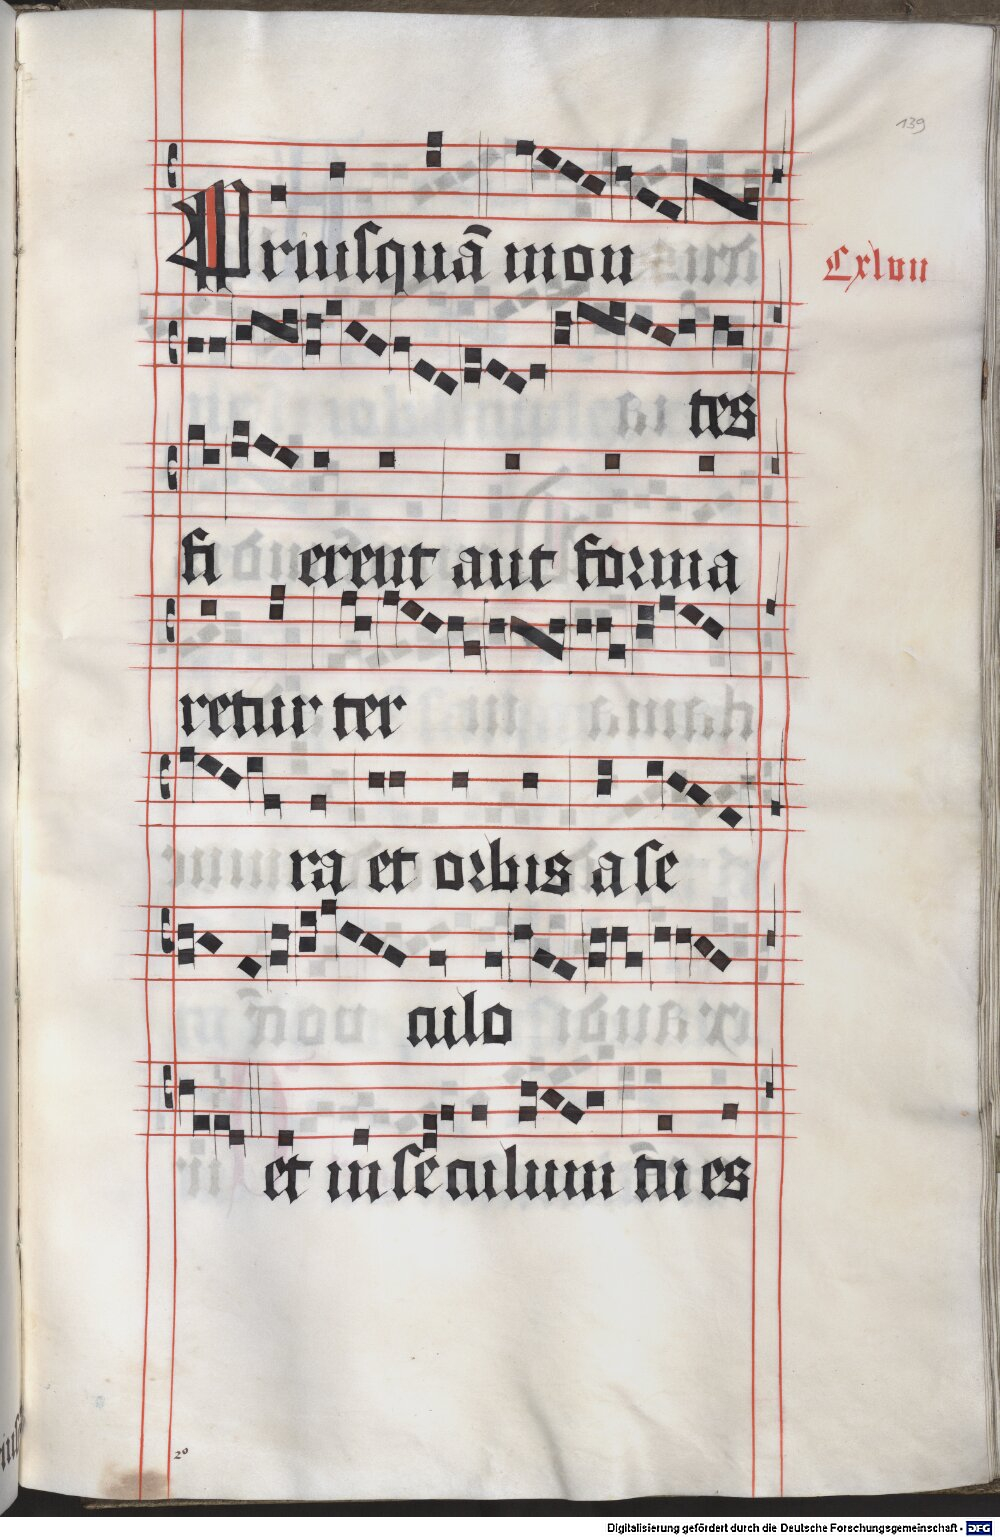 139
Priusquā mon
Cxlvii
tes
fi erent aut forma
retur ter
ra et orbis a se
culo
et in seculum tu es
20
Digitalisierung gefördert durch die Deutsche Forschungsgemeinschaft - DFG